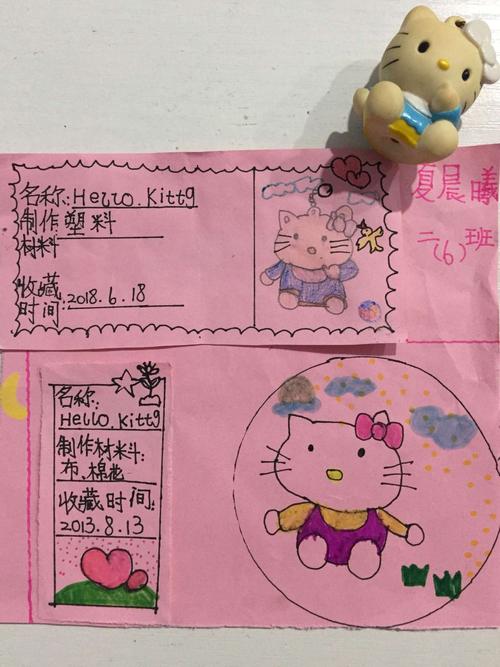 名称:Hello.Kitty
制作塑料
材料
收藏
时间:2018.6.18
夏晨曦
二(6)班
名称:
Hello.Kitty
制作材料:
布、棉花
收藏时间:
2013.8.13